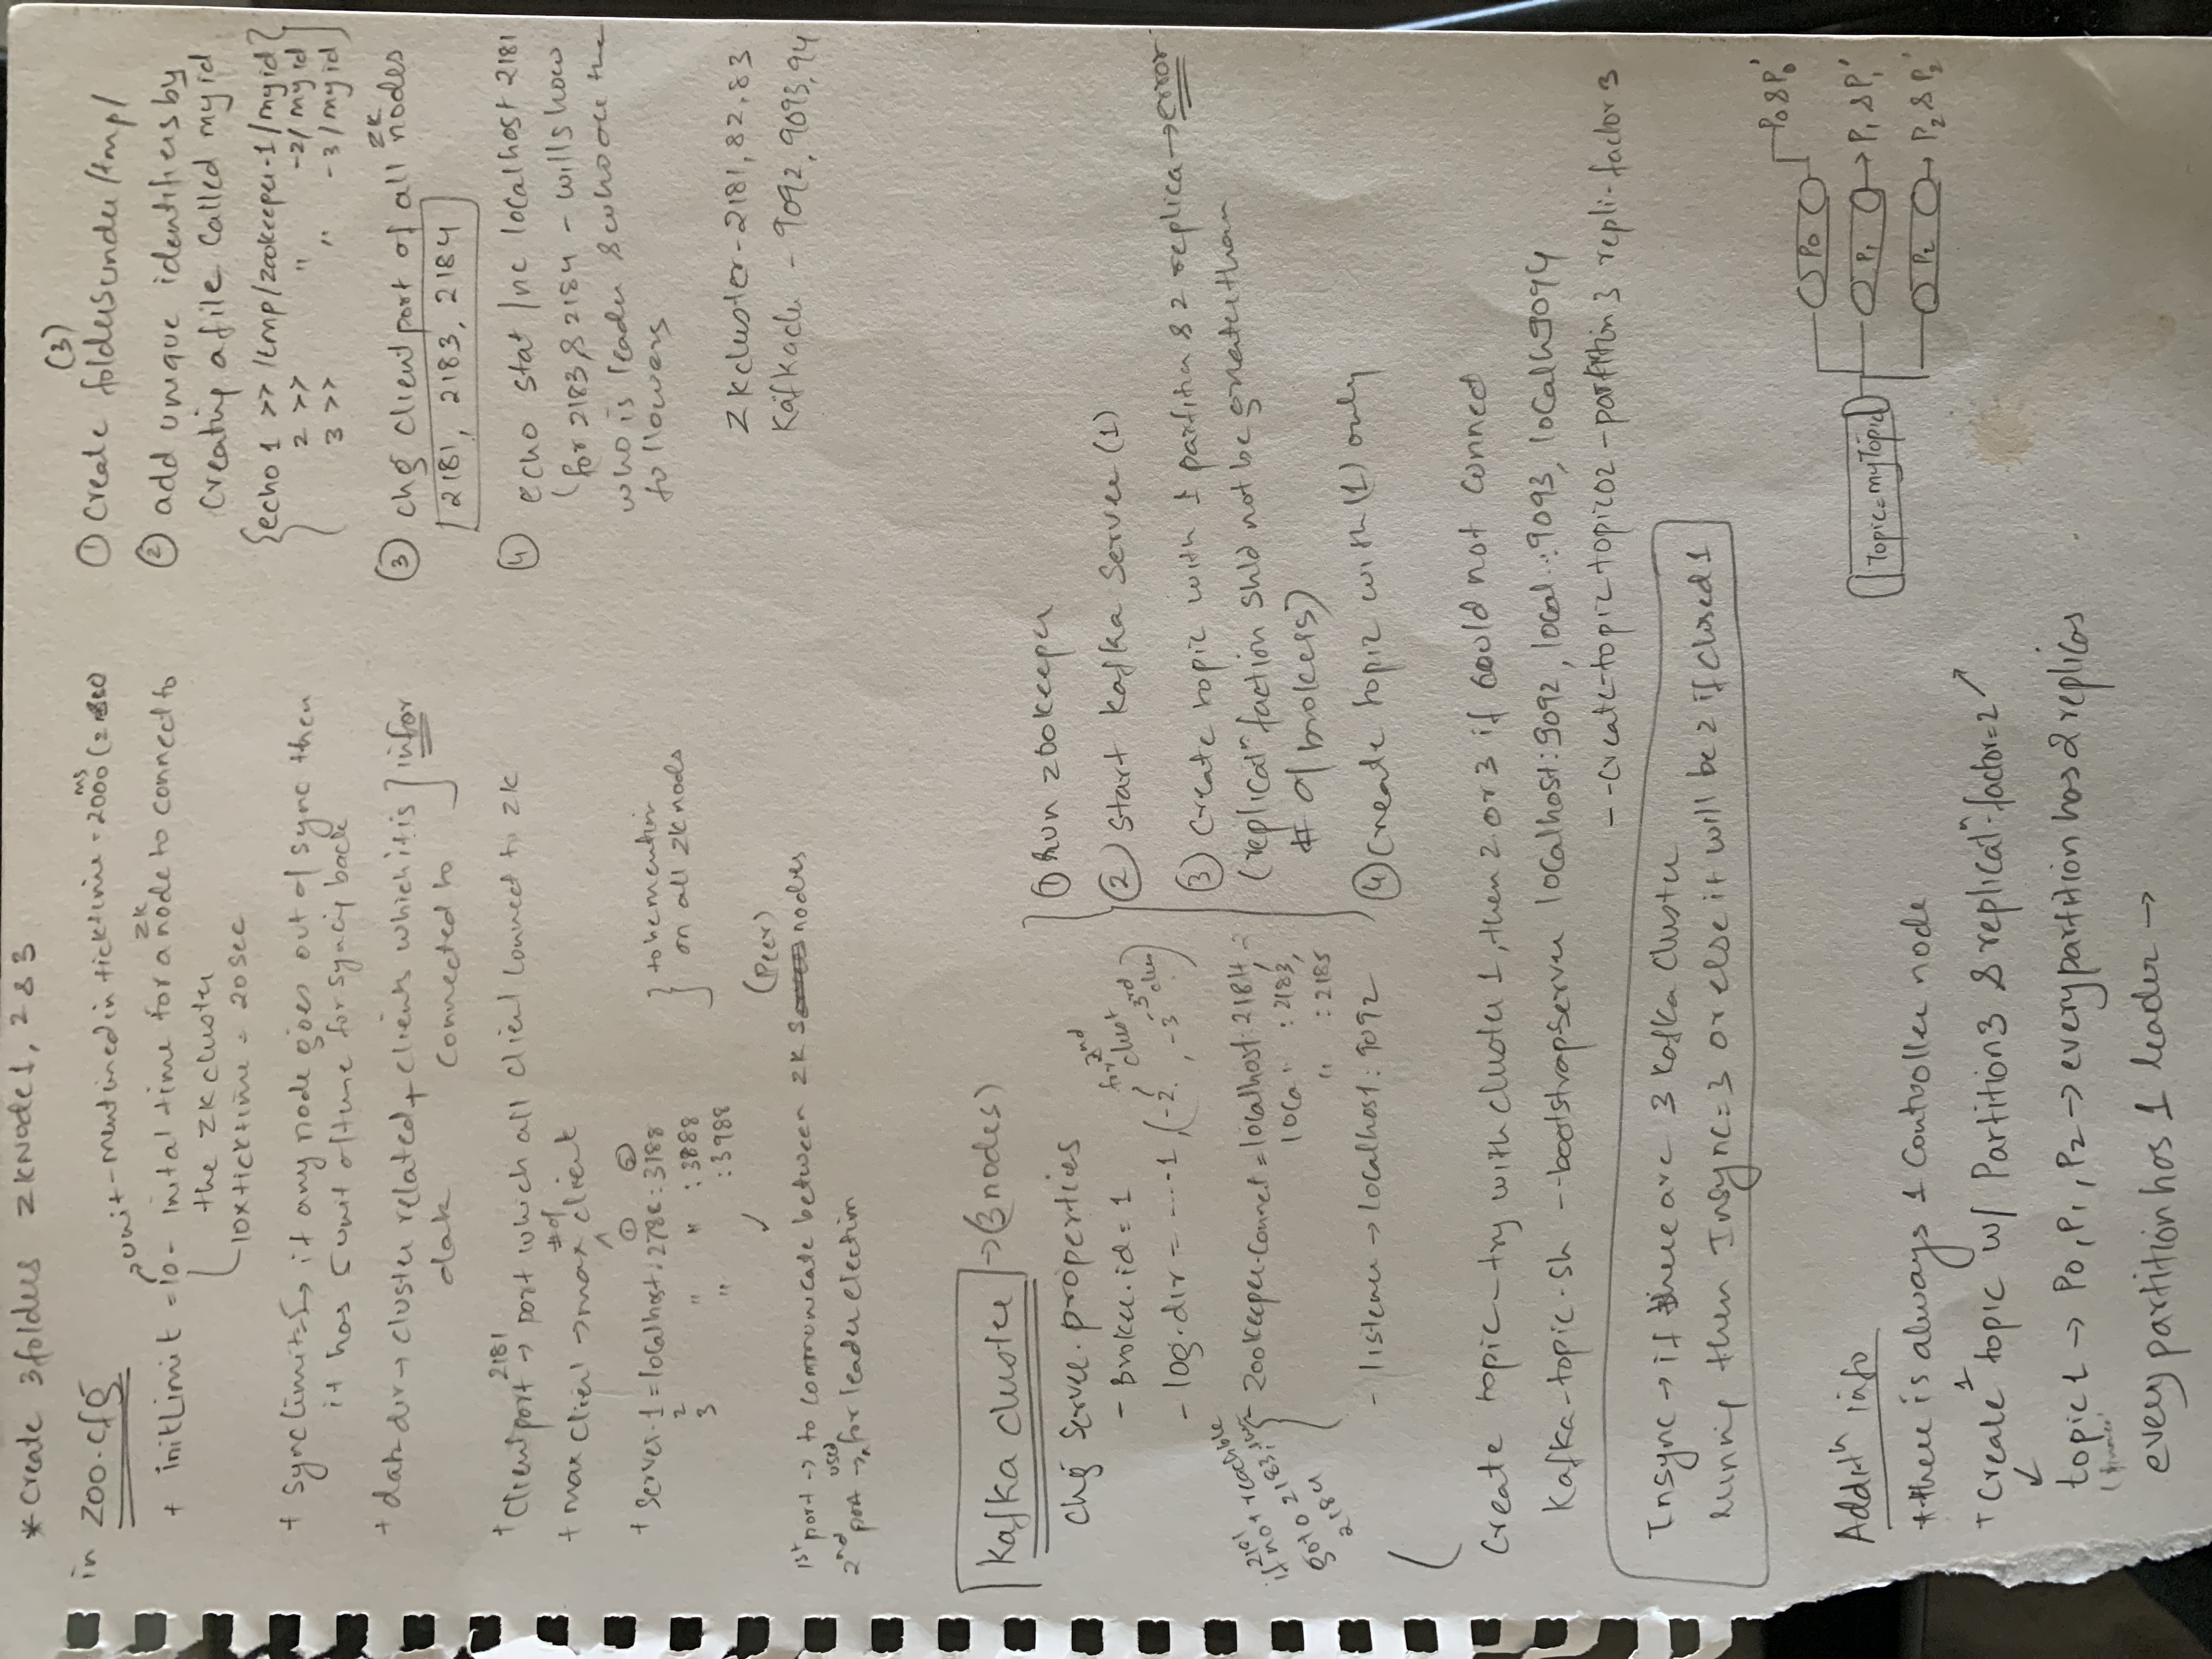 * Create 3 folders ZKNode1, 2 & 3
in zoo.cfg
unit - mentioned in ticktime = 2000 ms (2 sec)
+ initLimit = 10 - inital time for a ZK node to connect to
the ZK cluster
10xticktime = 20 sec
+ synclimit=5 → if any node goes out of sync then
it has 5 unit of time for syncing back
+ data dir → cluster related + clients which it is } infor
data connected to
+ Client port 2181 → port which all client connect to ZK
+ max client → max # of client
① ②
+ Server.1 = localhost : 2788 : 3188 } to be mention
2 " " : 3888 on all ZK nods
3 " : 3988
(Peer)
1st port → to communicate between ZK nodes
2nd port → used for leader election
(3)
① Create folders under /tmp/
② add unique identifiers by
Creating a file Called myid
{echo 1 >> /tmp/zookeeper-1/myid}
2 >> " -2/ myid
3 >> " -3/myid
③ chg client port of all ZK nodes
2181, 2183, 2184
④ echo stat | nc localhost 2181
(for 2183 & 2184 - will show
who is leader & who are the
followers
ZK cluster - 2181, 82, 83
Kafka clu - 9092, 9093, 94
Kafka cluster → (3 nodes)
Chg Server.properties
- Broker.id = 1
- log.dir = ....-1, (-2, -3)
for 2nd clust
-3rd clus
- Zookeeper.connect = localhost:2181,
loca " : 2183,
" : 2185
if 2181 not reachable
goto 2183, then
2184
- listener → localhost : 9092
① Run zookeeper
② Start Kafka Server (1)
③ Create topic with 1 partition & 2 replica → error
(replicatn faction shld not be greater than
# of brokers)
④ Create topic with (1) only
Create topic - try with cluster 1, then 2 or 3 if could not connect
Kafka-topic.sh --bootstrapserver localhost:9092, local..:9093, localh9094
--create-topic topic02 -partition 3 repli-factor 3
Insync → if there are 3 Kafka Cluster
running then Insync=3 or else it will be 2 if closed 1
Additn info
* there is always 1 Controller node
+ Create 1 topic w/ Partition 3 & replicatn-factor=2
topic 1 → P0, P1, P2 → every partition has 2 replicas
every partition has 1 leader →
Topic=myTopic
P0 P0 & P0'
P1 → P1 & P1'
P2 → P2 & P2'